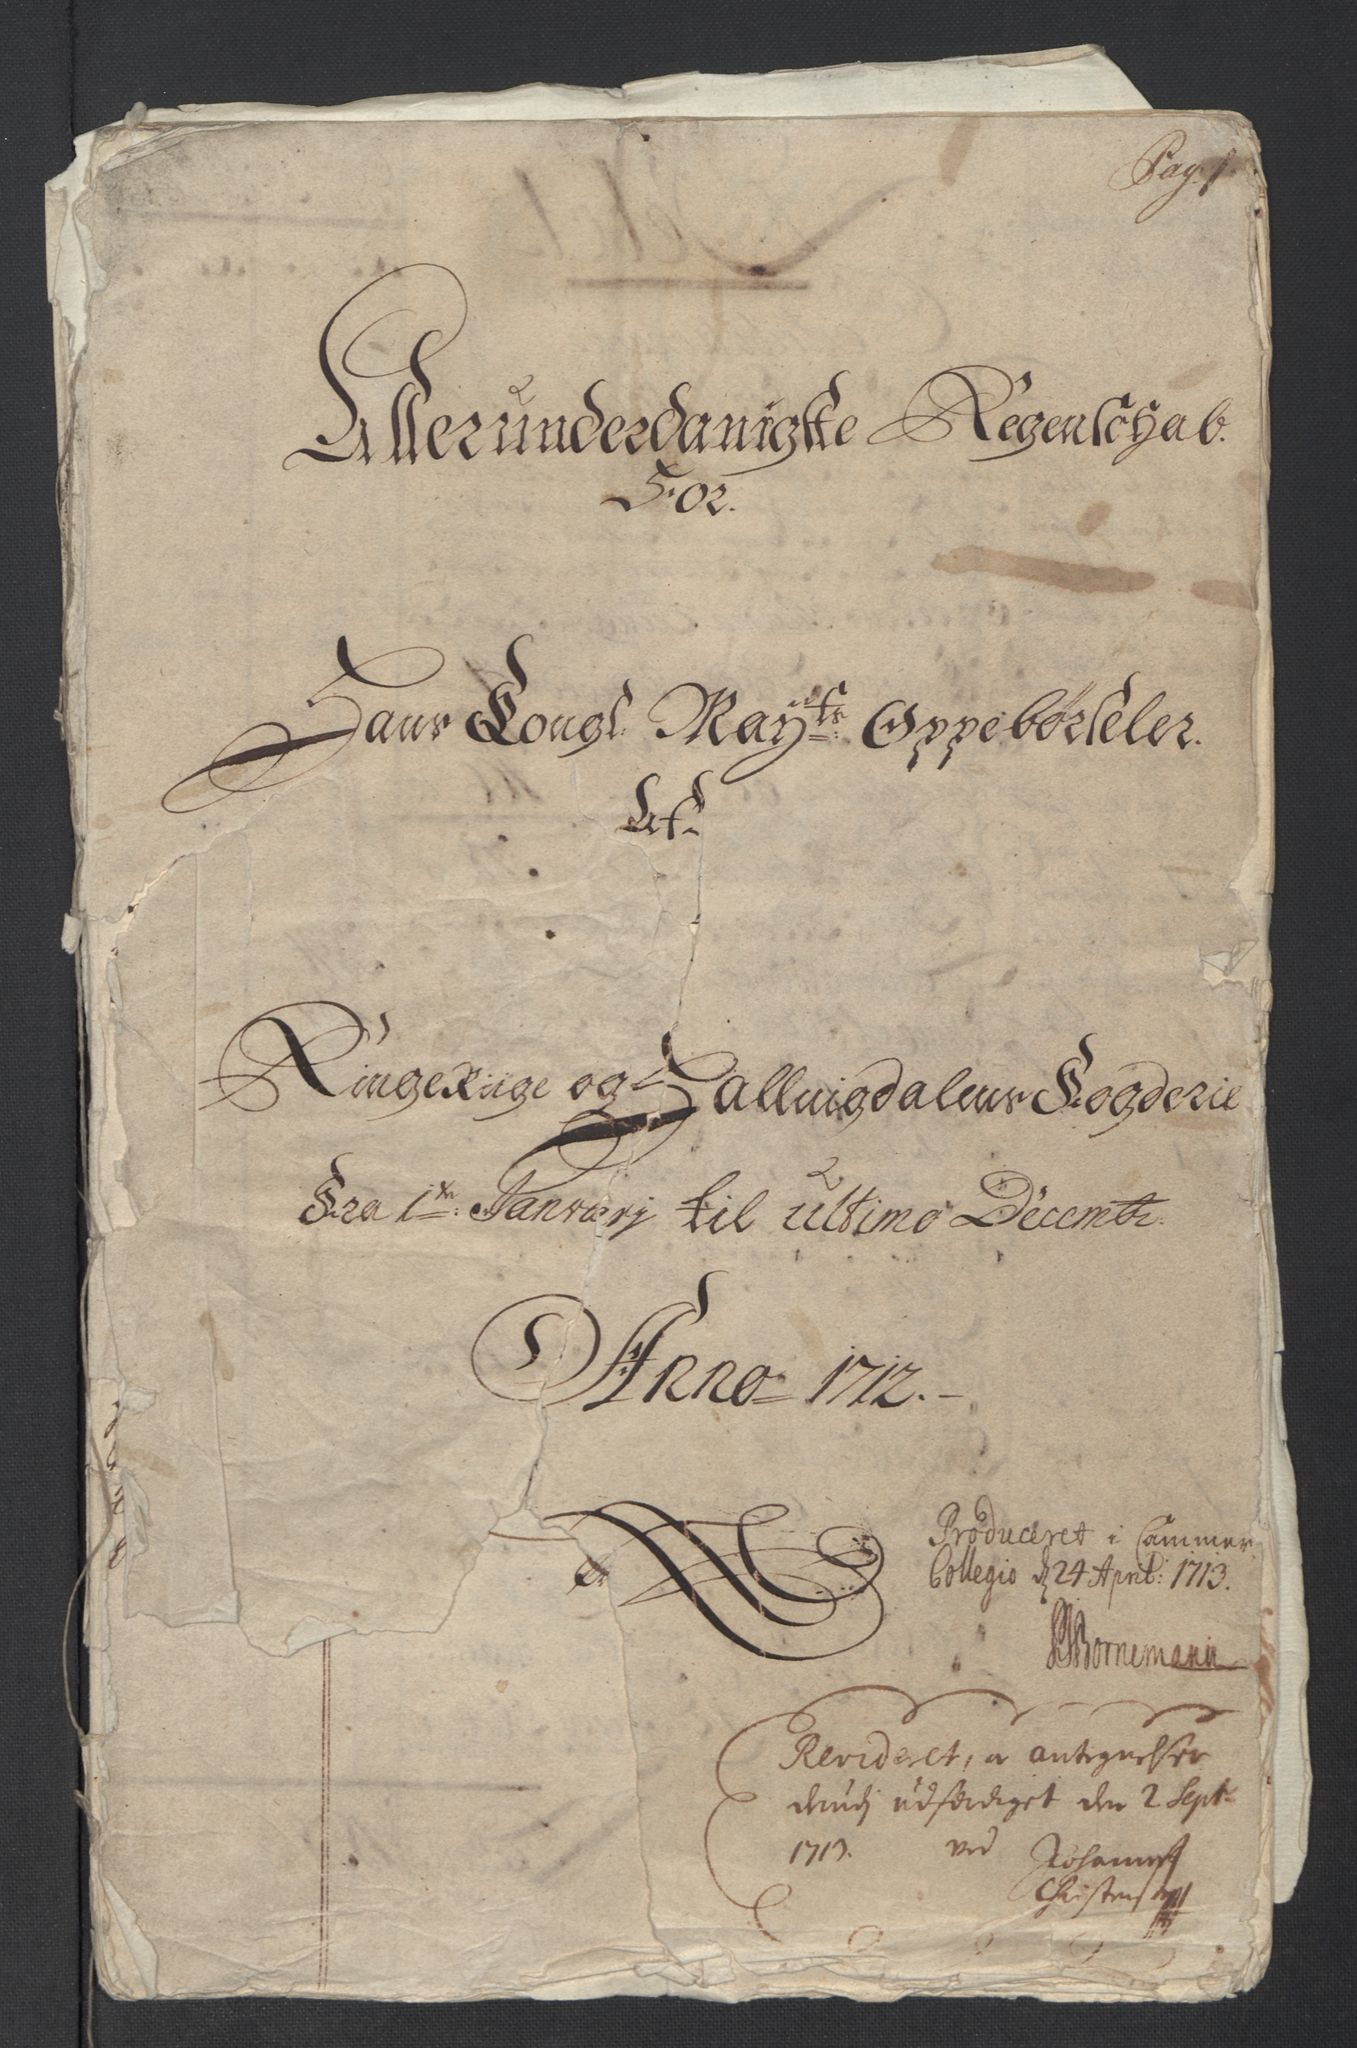 Pag. 1
Allerunderdanigste Regenschab.
For.
Hans Kongl. Mayts: Oppebørseler.
Af
Ringerige og Hallingdalens Fogderie
Fra 1te: Januarij til ultimo Decembr:
Anno 1712.
Produceret i Cammer
Collegio d 24 April: 1713.
Bornemann
Revideret, og antegnelser
derudj udferdiget den 2 Sept:
1713. ved Johannes
Christensen